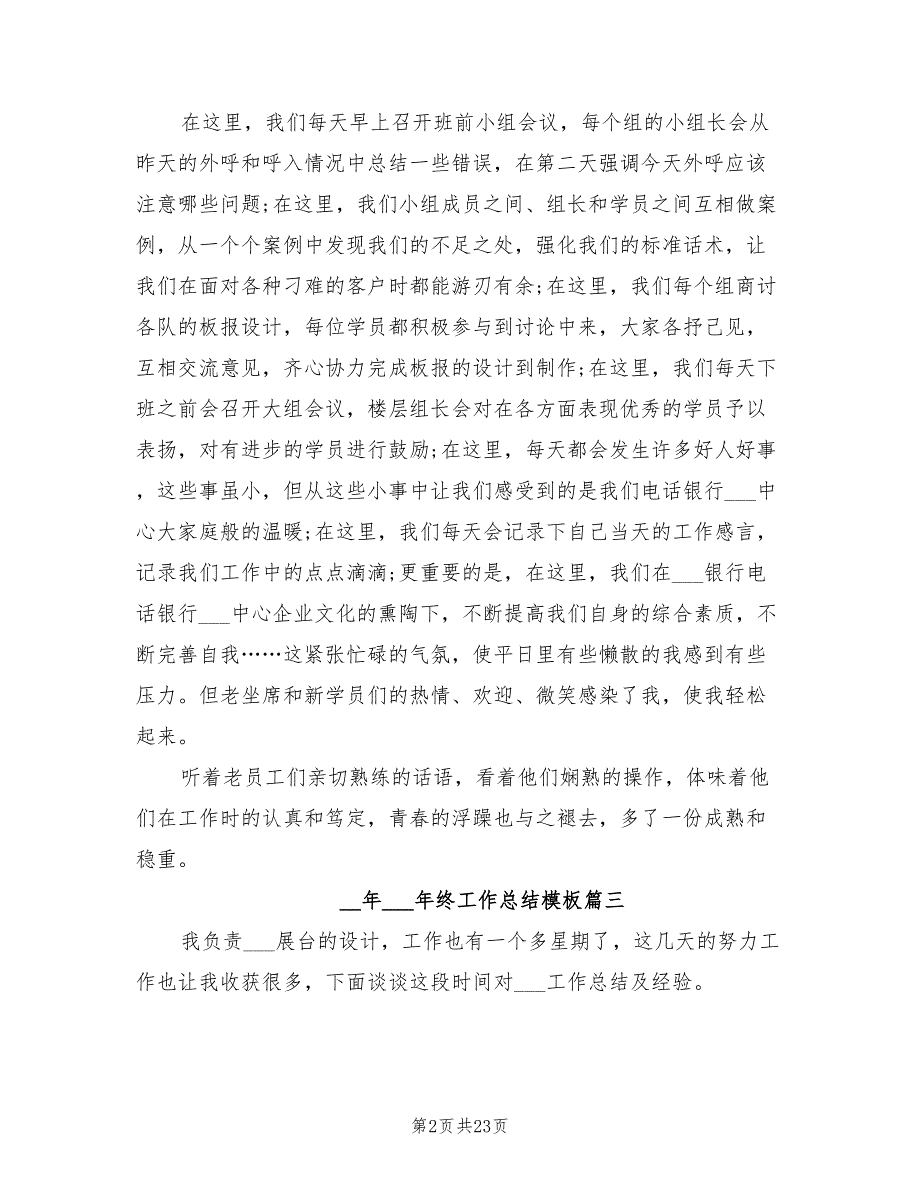 在这里，我们每天早上召开班前小组会议，每个组的小组长会从
昨天的外呼和呼入情况中总结一些错误，在第二天强调今天外呼应该
注意哪些问题;在这里，我们小组成员之间、组长和学员之间互相做案
例，从一个个案例中发现我们的不足之处，强化我们的标准话术，让
我们在面对各种刁难的客户时都能游刃有余;在这里，我们每个组商讨
各队的板报设计，每位学员都积极参与到讨论中来，大家各抒己见，
互相交流意见，齐心协力完成板报的设计到制作;在这里，我们每天下
班之前会召开大组会议，楼层组长会对在各方面表现优秀的学员予以
表扬，对有进步的学员进行鼓励;在这里，每天都会发生许多好人好事
，这些事虽小，但从这些小事中让我们感受到的是我们电话银行___中
心大家庭般的温暖;在这里，我们每天会记录下自己当天的工作感言，
记录我们工作中的点点滴滴;更重要的是，在这里，我们在___银行电
话银行___中心企业文化的熏陶下，不断提高我们自身的综合素质，不
断完善自我……这紧张忙碌的气氛，使平日里有些懒散的我感到有些
压力。但老坐席和新学员们的热情、欢迎、微笑感染了我，使我轻松
起来。
听着老员工们亲切熟练的话语，看着他们娴熟的操作，体味着他
们在工作时的认真和笃定，青春的浮躁也与之褪去，多了一份成熟和
稳重。
__年___年终工作总结模板篇三
我负责___展台的设计，工作也有一个多星期了，这几天的努力工
作也让我收获很多，下面谈谈这段时间对___工作总结及经验。
第2页共23页